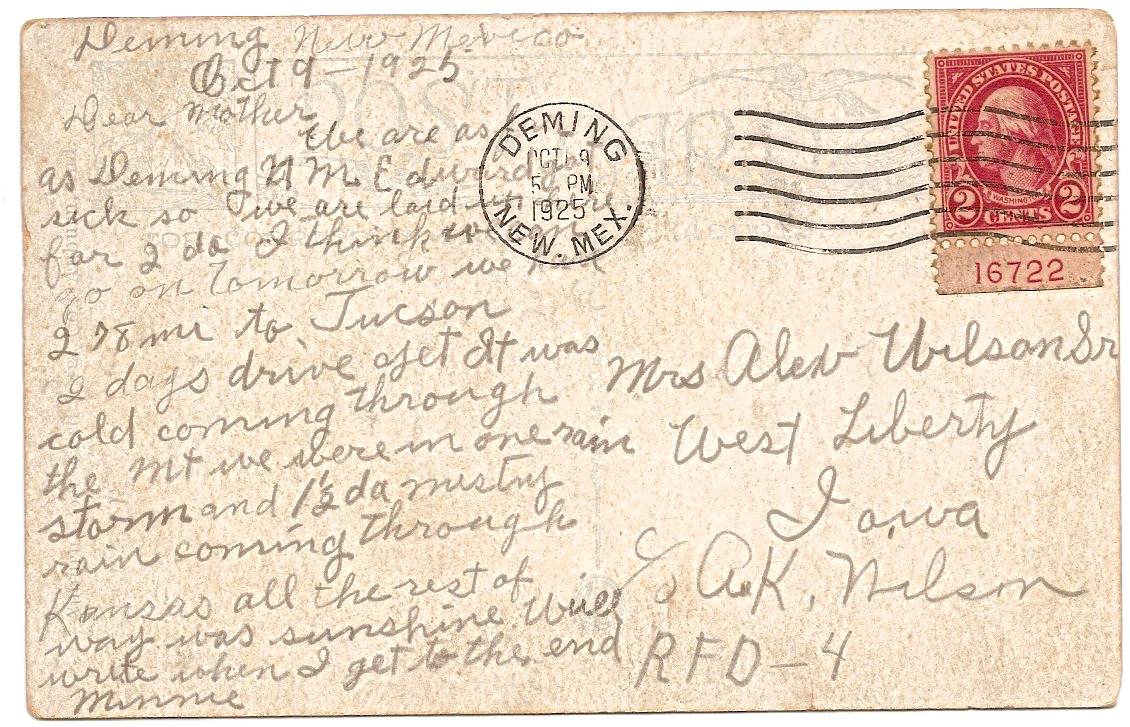 Deming New Mexico
Oct 9 - 1925
Dear Mother
We are as
as Deming N M. Edward
sick so we are laid up here
for 2 da I think we
go on tomorrow we
278 mi to Tucson
2 days drive yet It was
cold coming through
the Mt we were in one rain
storm and 1½ da misty
rain coming through
Kansas all the rest of
way was sunshine Will
write when I get to the end
Minnie
DEMING
OCT 9
5 PM
1925
NEW. MEX.
UNITED STATES POSTAGE
WASHINGTON
2 CENTS 2
16722
Mrs Alex Wilson Sr
West Liberty
Iowa
c/o A.K. Wilson
RFD-4